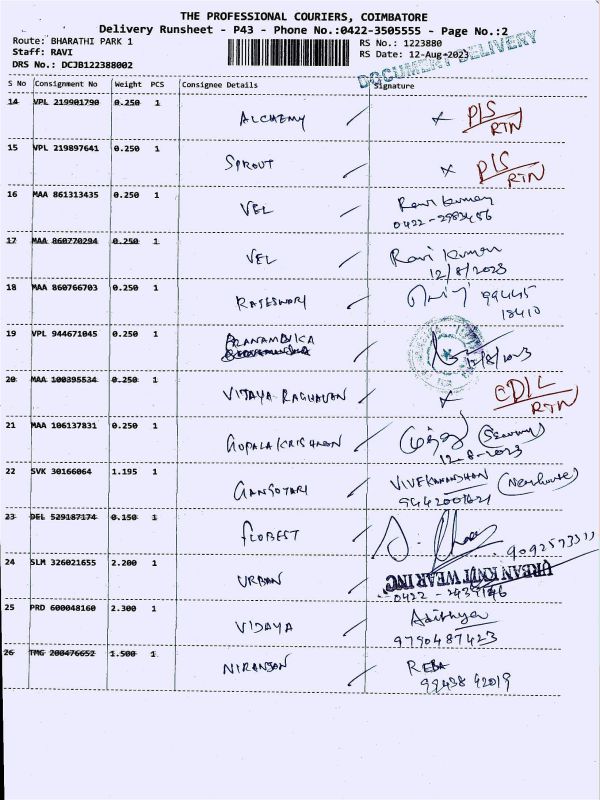 THE PROFESSIONAL COURIERS, COIMBATORE
Delivery Runsheet - P43 - Phone No.:0422-3505555 - Page No.:2
Route: BHARATHI PARK 1 RS No.: 1223880
Staff: RAVI RS Date: 12-Aug-2023
DRS No.: DCJB122388002 DOCUMENT DELIVERY
S No Consignment No Weight PCS Consignee Details Signature
14 VPL 219901790 0.250 1 ALCHEMY P/S RTN
15 VPL 219897641 0.250 1 SPROUT P/S RTN
16 MAA 861313435 0.250 1 VEL Ravi Kumar
0422-2983456
17 MAA 860770294 0.250 1 VEL Ravi Kumar
12/8/2023
18 MAA 860766703 0.250 1 RAJESWARI 99445
18410
19 VPL 944671045 0.250 1 PRANAMBIKA 12/8/2023
20 MAA 100395534 0.250 1 VIJAYA RAGHAVAN CD/L RTN
21 MAA 106137831 0.250 1 GOPALA KRISHNAN
12-8-2023
22 SVK 30166064 1.195 1 GANGOTARI VIVEKANANDHAN
9442007621
23 DEL 529187174 0.150 1 FLOBEST
9092573311
24 SLM 326021655 2.200 1 URBAN URBAN KNIT WEAR INC
0422-2439146
25 PRD 600048160 2.300 1 VIJAYA Adithya
9790487423
26 TMG 200476652 1.500 1 NIRANJAN REBA
99438 92019